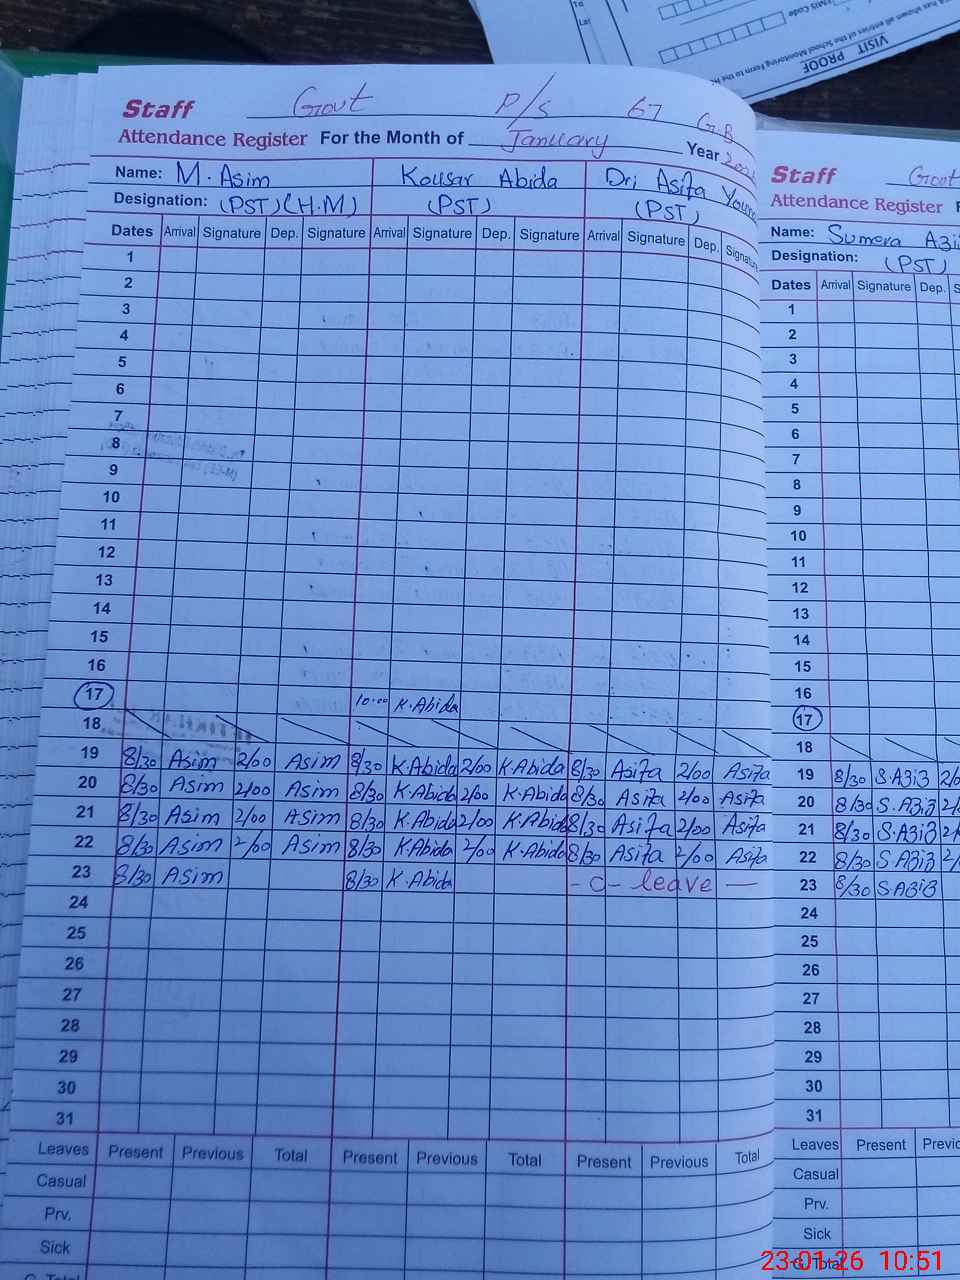 VISIT
PROOF
EMIS Code
Staff Govt P/S 67 G.B
Attendance Register For the Month of January Year
Name: M. Asim Kousar Abida Dri Asifa
Designation: (PST)(H.M) (PST) (PST)
Dates Arrival Signature Dep. Signature Arrival Signature Dep. Signature Arrival Signature Dep. Signature
1
2
3
4
5
6
7
8
9
10
11
12
13
14
15
16
17 10:00 K.Abida
18
19 8/30 Asim 2/00 Asim 8/30 K.Abida 2/00 K.Abida 8/30 Asifa 2/00 Asifa
20 8/30 Asim 2/00 Asim 8/30 K.Abida 2/00 K.Abida 8/30 Asifa 2/00 Asifa
21 8/30 Asim 2/00 Asim 8/30 K.Abida 2/00 K.Abida 8/30 Asifa 2/00 Asifa
22 8/30 Asim 2/00 Asim 8/30 K.Abida 2/00 K.Abida 8/30 Asifa 2/00 Asifa
23 8/30 Asim 8/30 K.Abida - C - leave -
24
25
26
27
28
29
30
31
Leaves Present Previous Total Present Previous Total Present Previous Total
Casual
Prv.
Sick
Staff Govt
Attendance Register
Name: Sumera
Designation: (PST)
Dates Arrival Signature Dep.
1
2
3
4
5
6
7
8
9
10
11
12
13
14
15
16
17
18
19 8/30 S.A3iB
20 8/30 S.A3iB
21 8/30 S.A3iB
22 8/30 S.A3iB
23 8/30 S.A3iB
24
25
26
27
28
29
30
31
Leaves Present
Casual
Prv.
Sick
G. Total
23.01.26 10:51